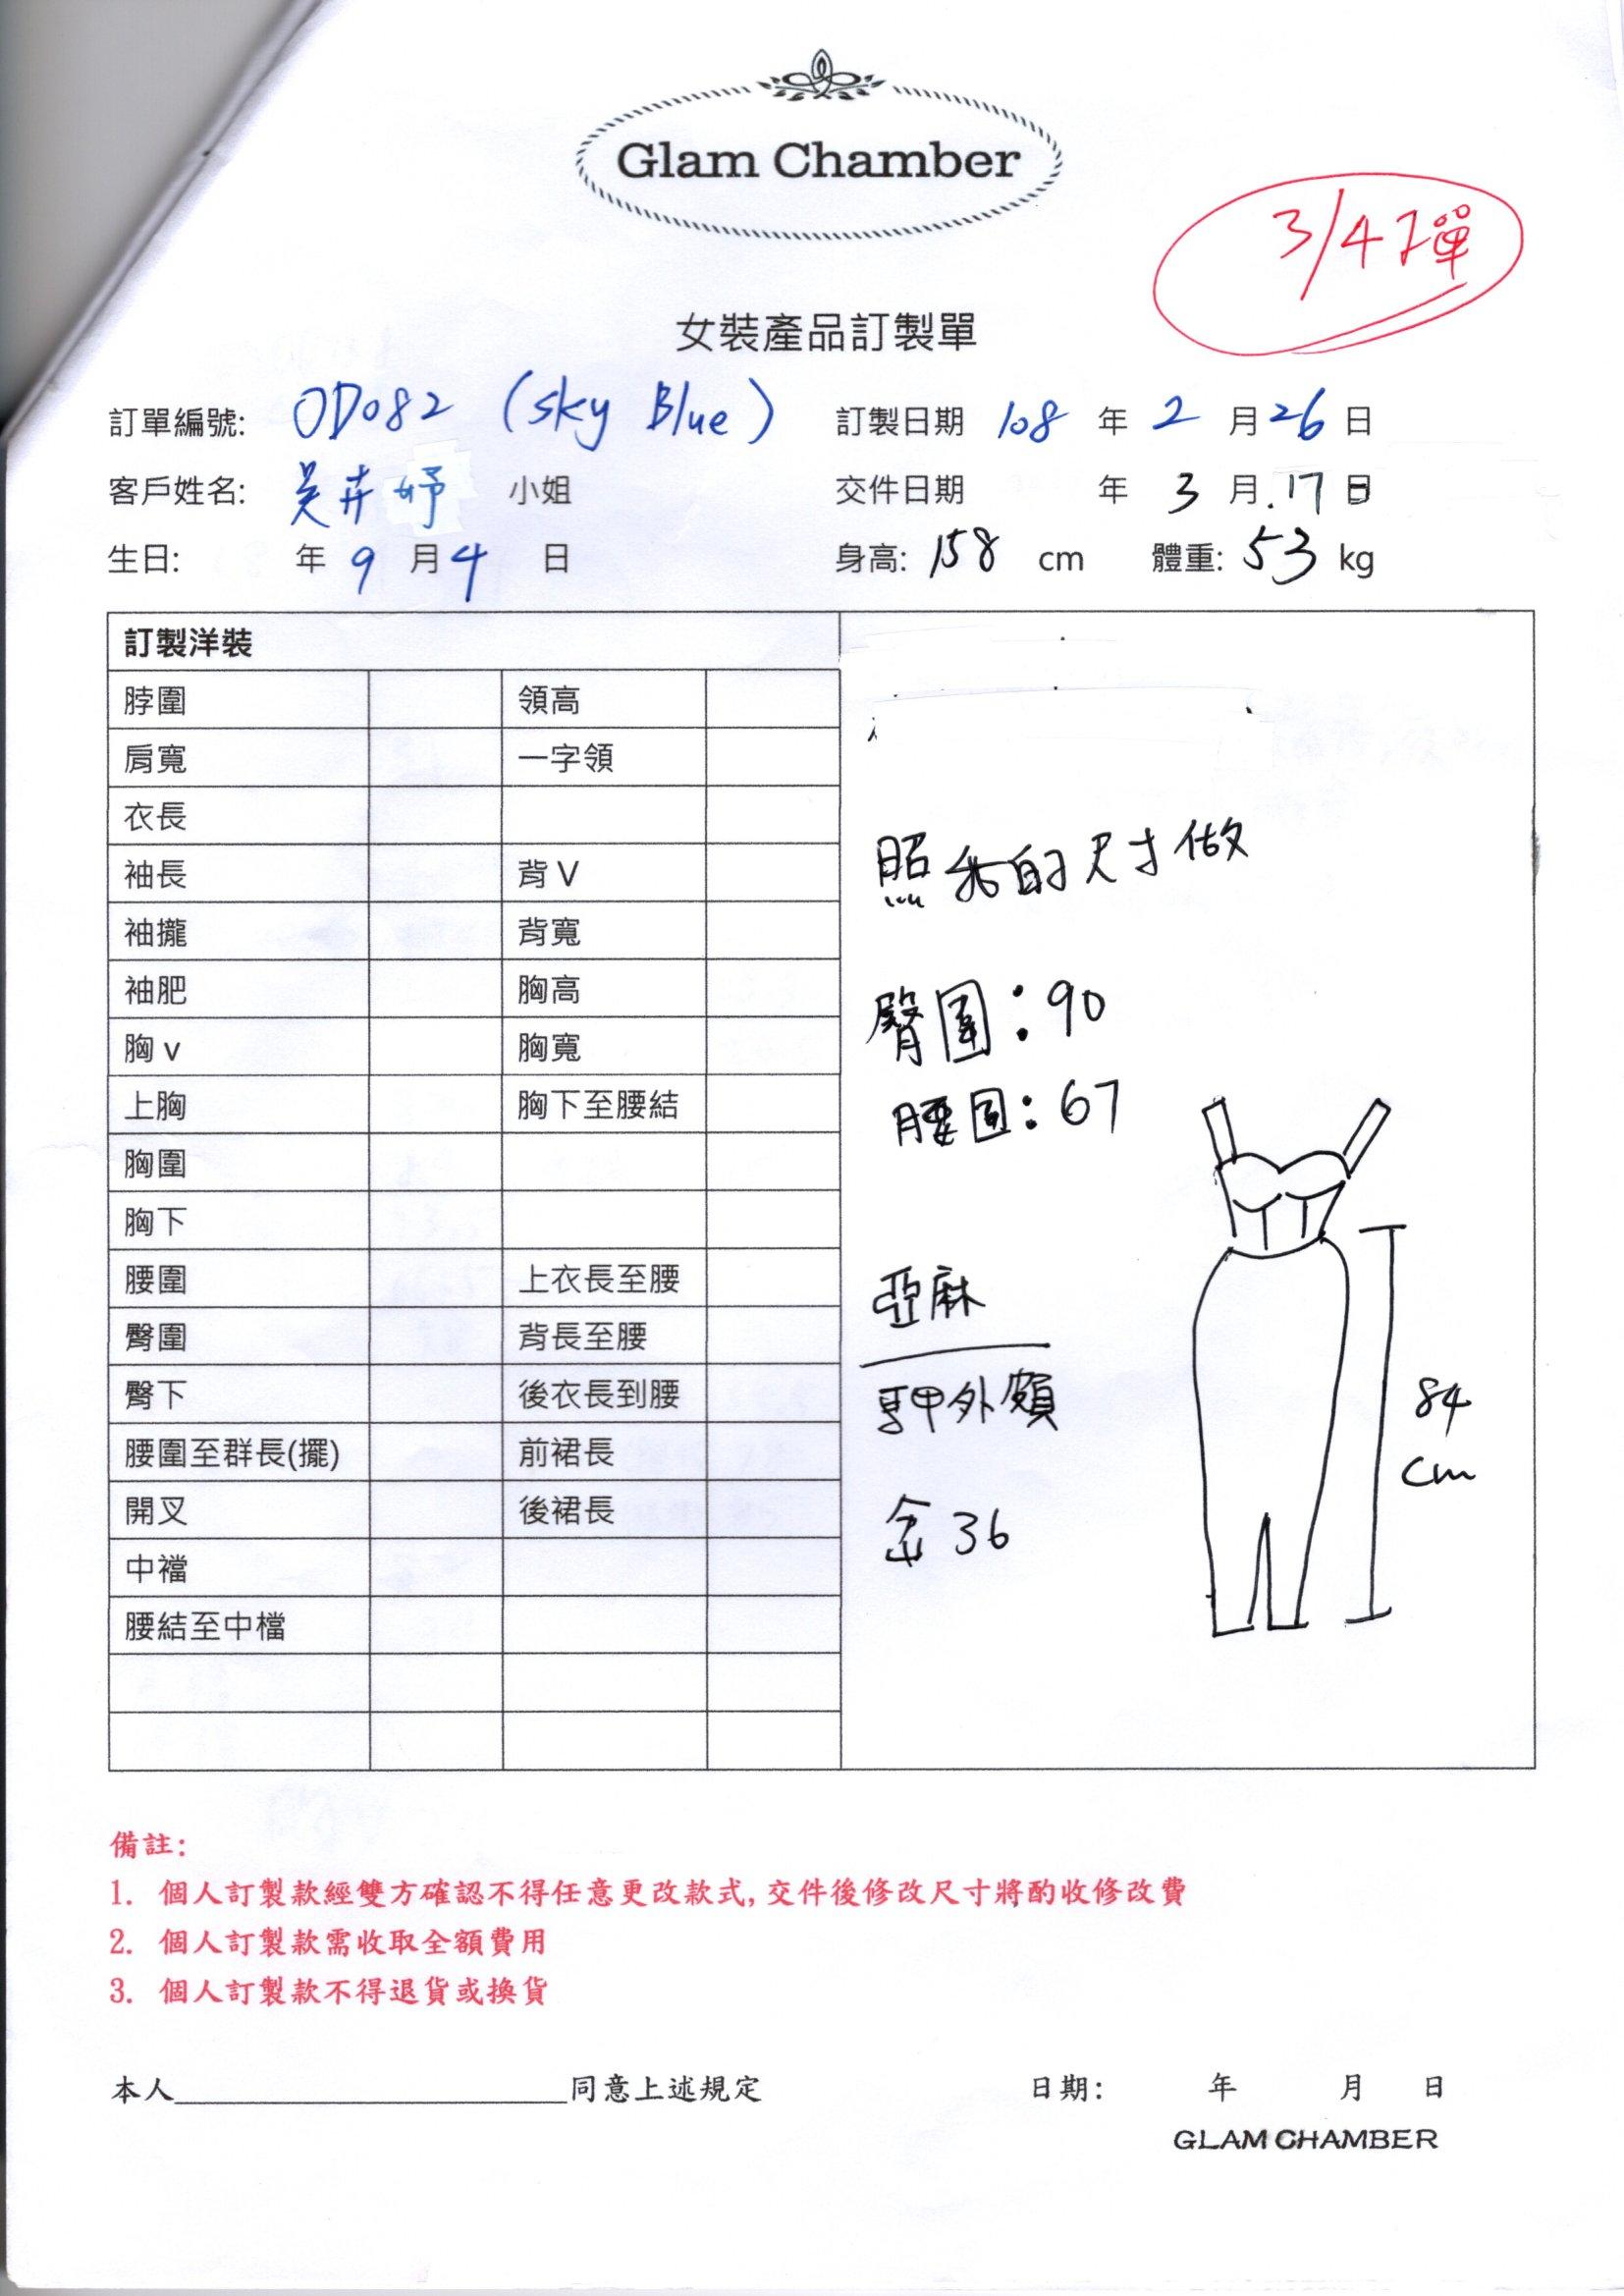 Glam Chamber
3/4
女裝產品訂製單
訂單編號: OD082 (sky Blue) 訂製日期 108 年 2 月 26 日
客戶姓名: 吳卉妤 小姐 交件日期 年 3 月 17 日
生日: 年 9 月 4 日 身高: 158 cm 體重: 53 kg
訂製洋裝
脖圍 領高
肩寬 一字領
衣長
袖長 背 V
袖攏 背寬
袖肥 胸高
胸 v 胸寬
上胸 胸下至腰結
胸圍
胸下
腰圍 上衣長至腰
臀圍 背長至腰
臀下 後衣長到腰
腰圍至群長(擺) 前裙長
開叉 後裙長
中襠
腰結至中檔
照我的尺寸做
臀圍:90
腰圍:67
亞麻
外
36
84
cm
備註:
1. 個人訂製款經雙方確認不得任意更改款式, 交件後修改尺寸將酌收修改費
2. 個人訂製款需收取全額費用
3. 個人訂製款不得退貨或換貨
本人________________同意上述規定 日期: 年 月 日
GLAM CHAMBER